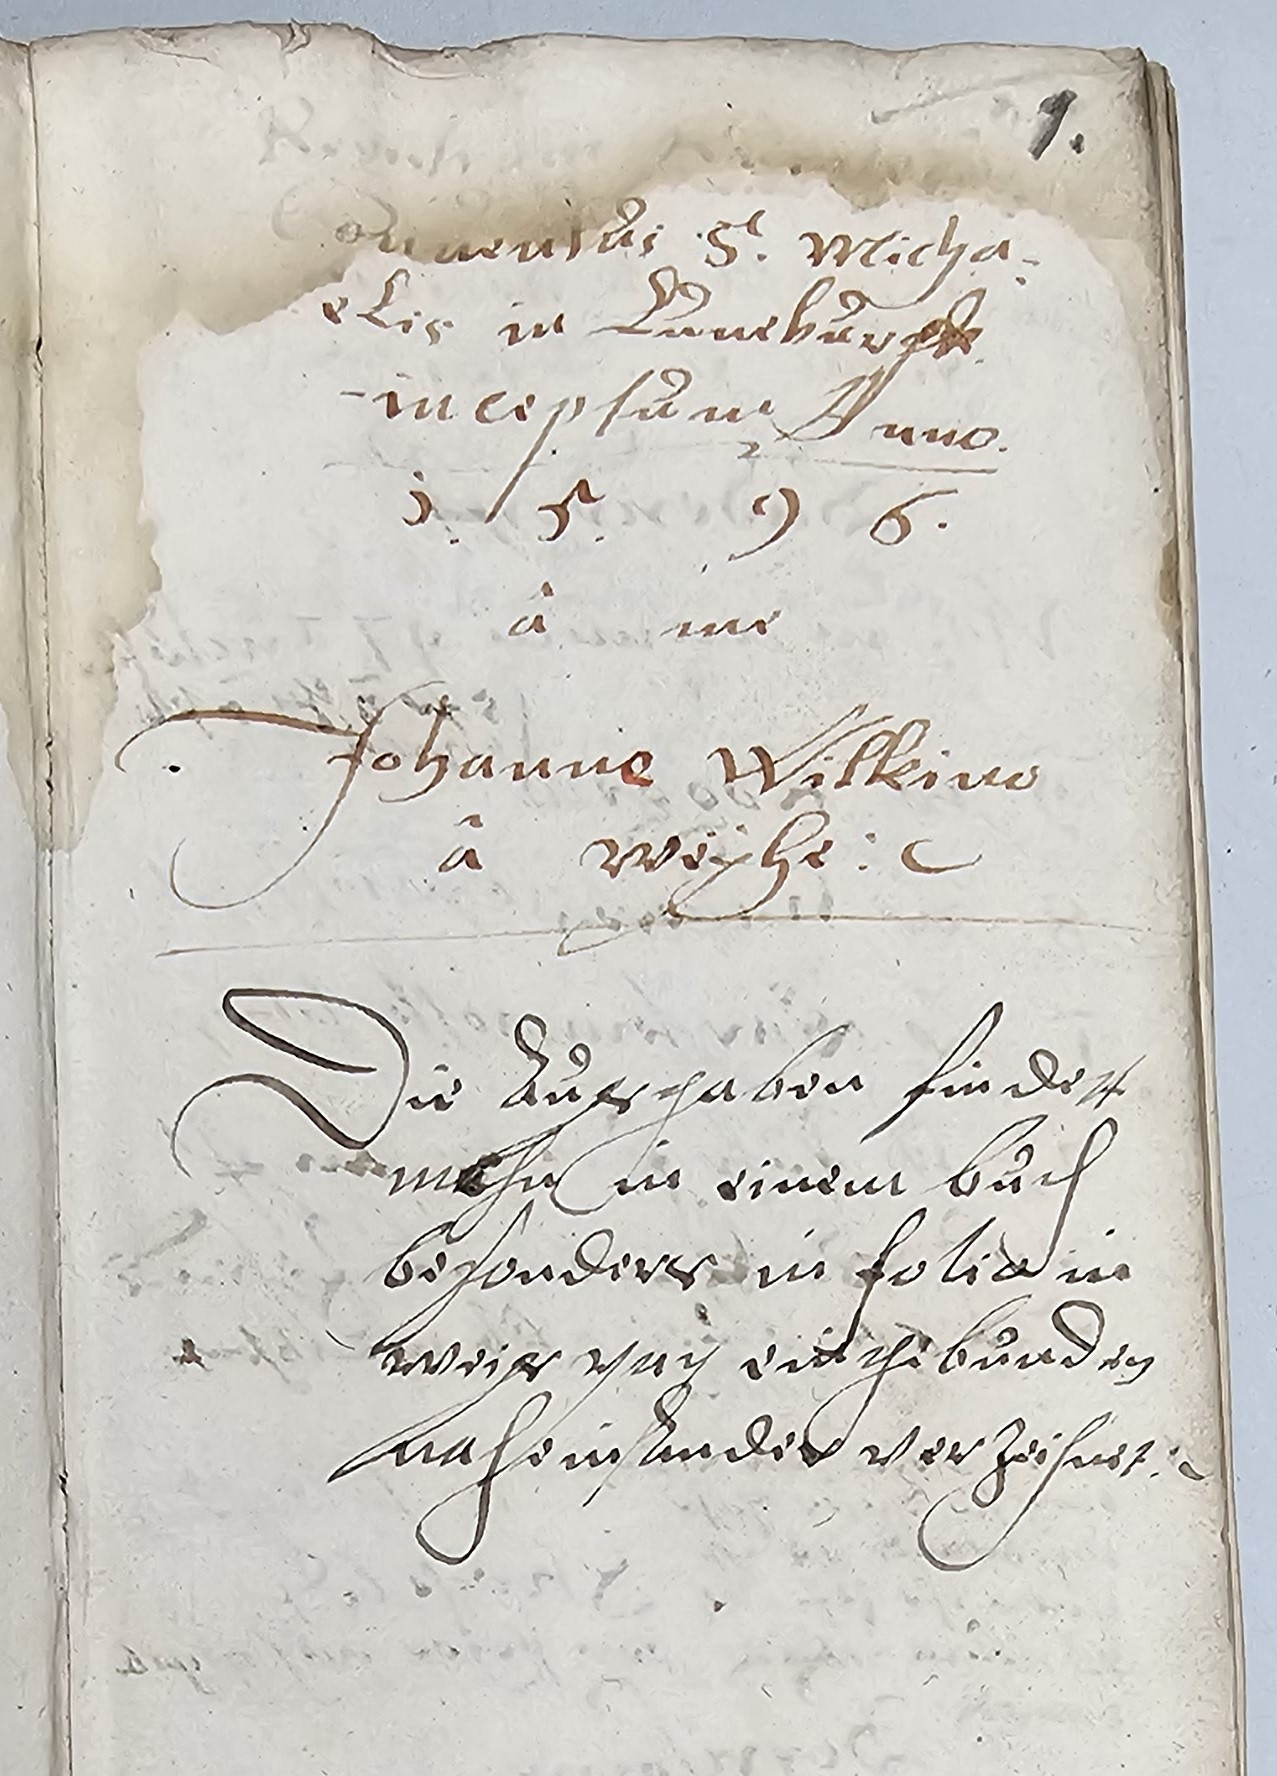 1.
Conuentus S. Micha-
elis in Luneburgk
inceptum Anno.
1. 5. 9 6.
â me
Johanne Wilkino
â Weyhe:
Die Ausgaben findett
mahn in einem buch
besonders in folio in
weis eingebunden
nah einander verzeihnet: